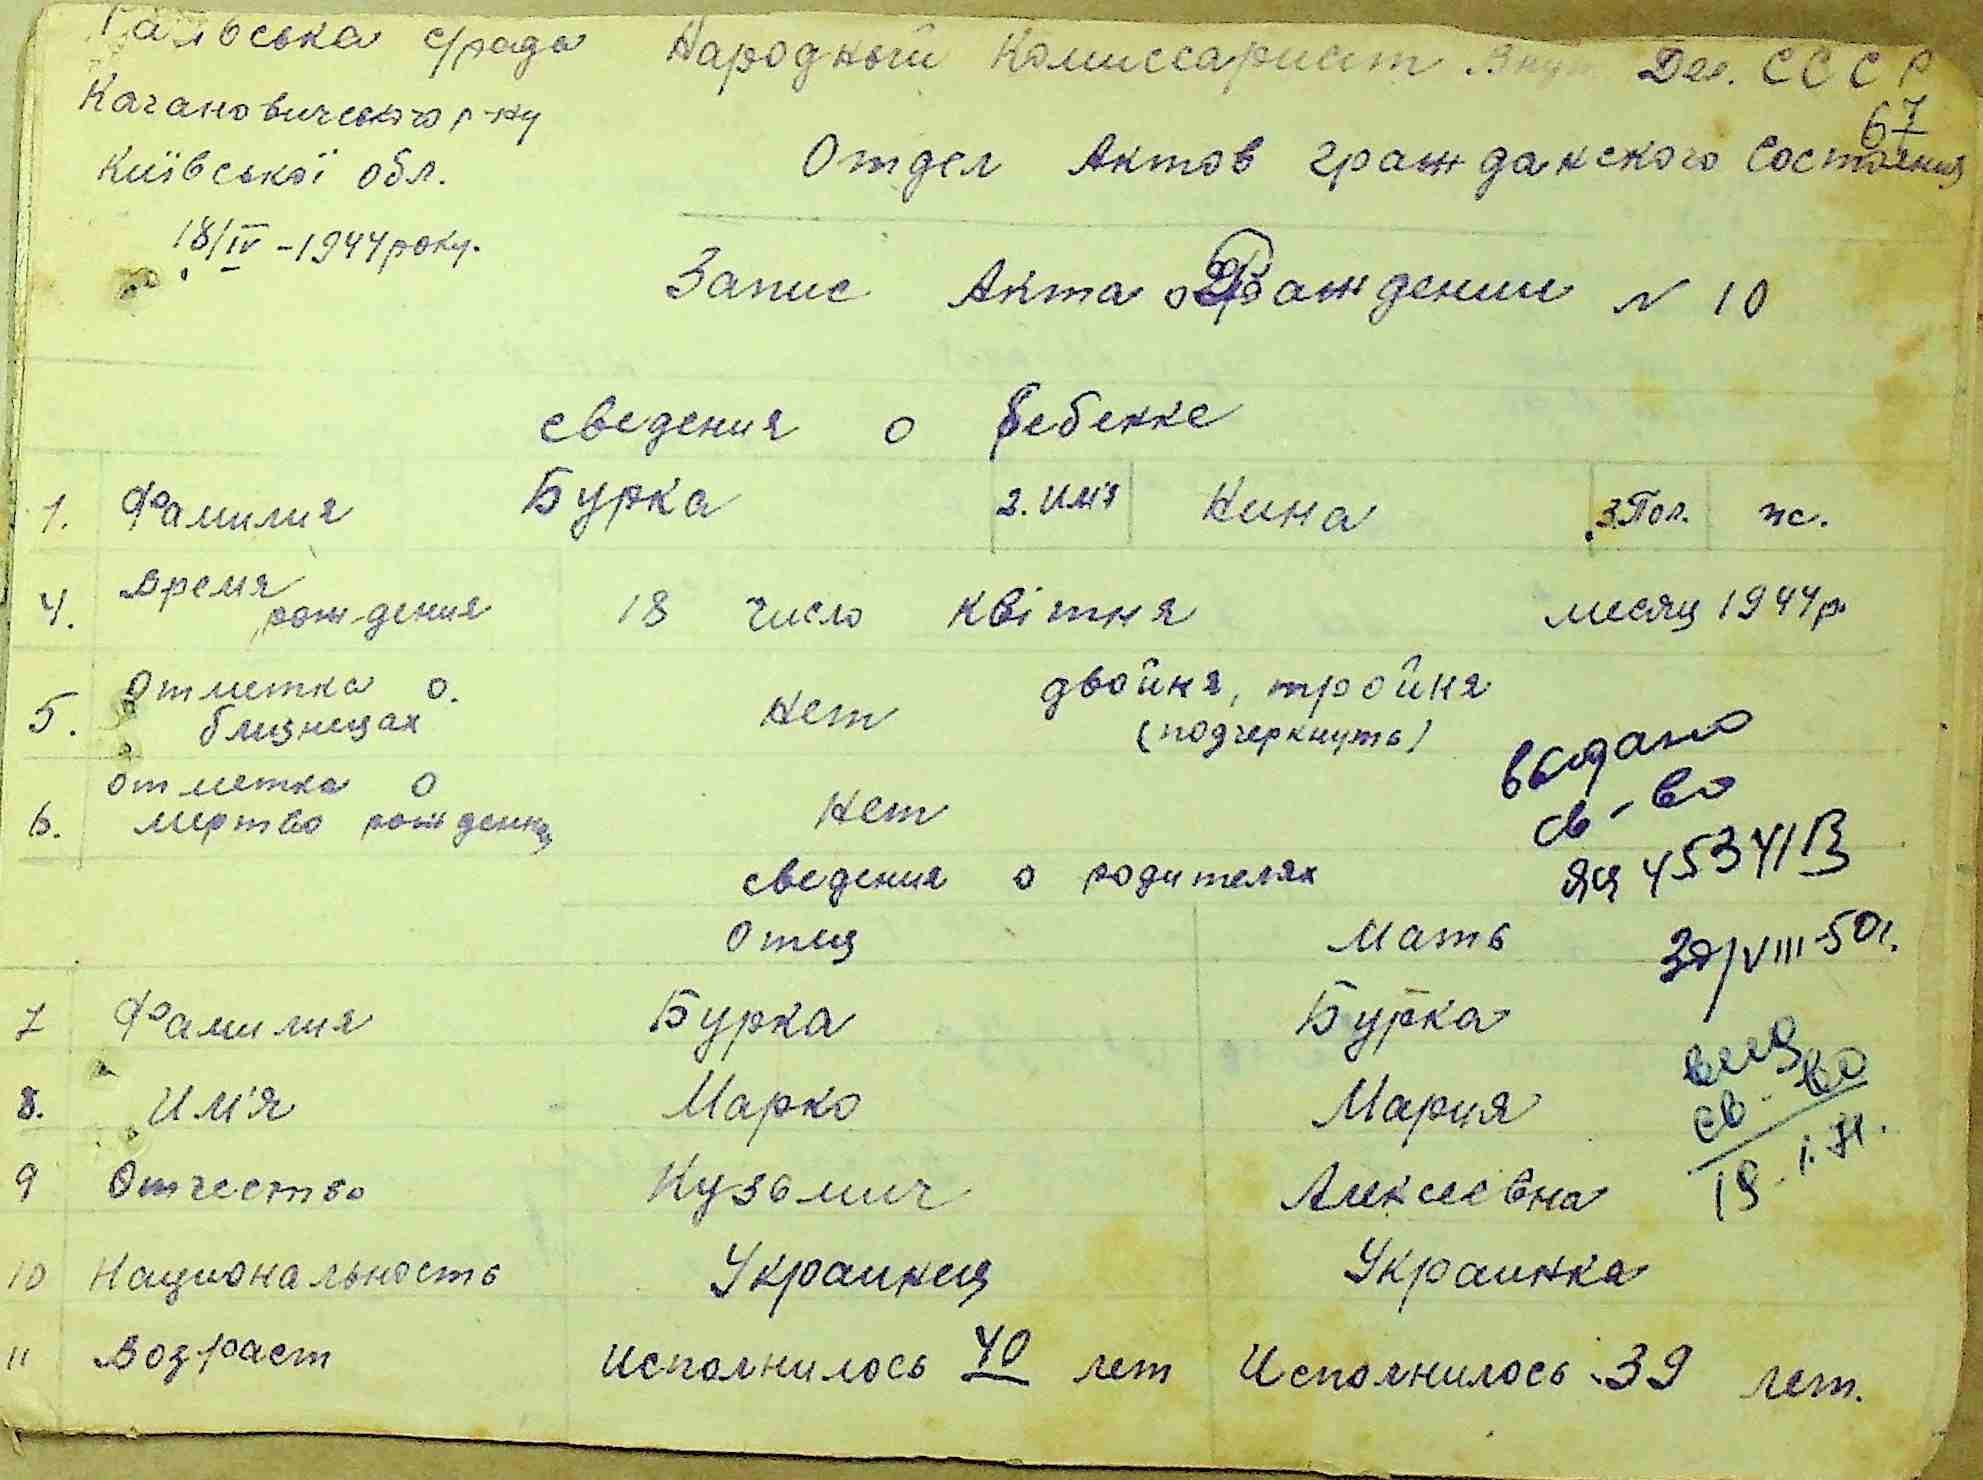 с/рада
Кагановичського р-ну
Київської обл.
18/IV - 1944 року.
Народный Комиссариат Внут Дел. СССР
67
Отдел Актов гражданского Состояния
Запис Акта о Рождении N 10
сведения о ребенке
1. Фамилия Бурка 2. Им'я Нина 3. Пол. ж.
4. Время рождения 18 число квітня месяц 1944 р
5. Отметка о. близнецах Нет двойня, тройня (подчеркнуть)
6. отметка о мертво рожденн Нет
выдано
св-во
ЯЦ 453411
30/VIII-50г.
сведения о родителях
Отец Мать
7 Фамилия Бурка Бурка
8. Им'я Марко Мария
9 Отчество Кузьмич Алексеевна
св-во
10 Национальность Украинец Украинка
11 Возраст Исполнилось 40 лет Исполнилось 39 лет.